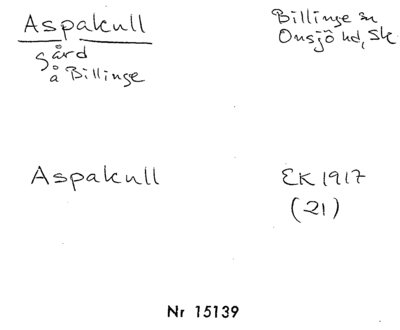 Aspakull
gård
å Billinge
Billinge sn
Onsjö hd, Sk
Aspakull
EK 1917
(21)
Nr 15139